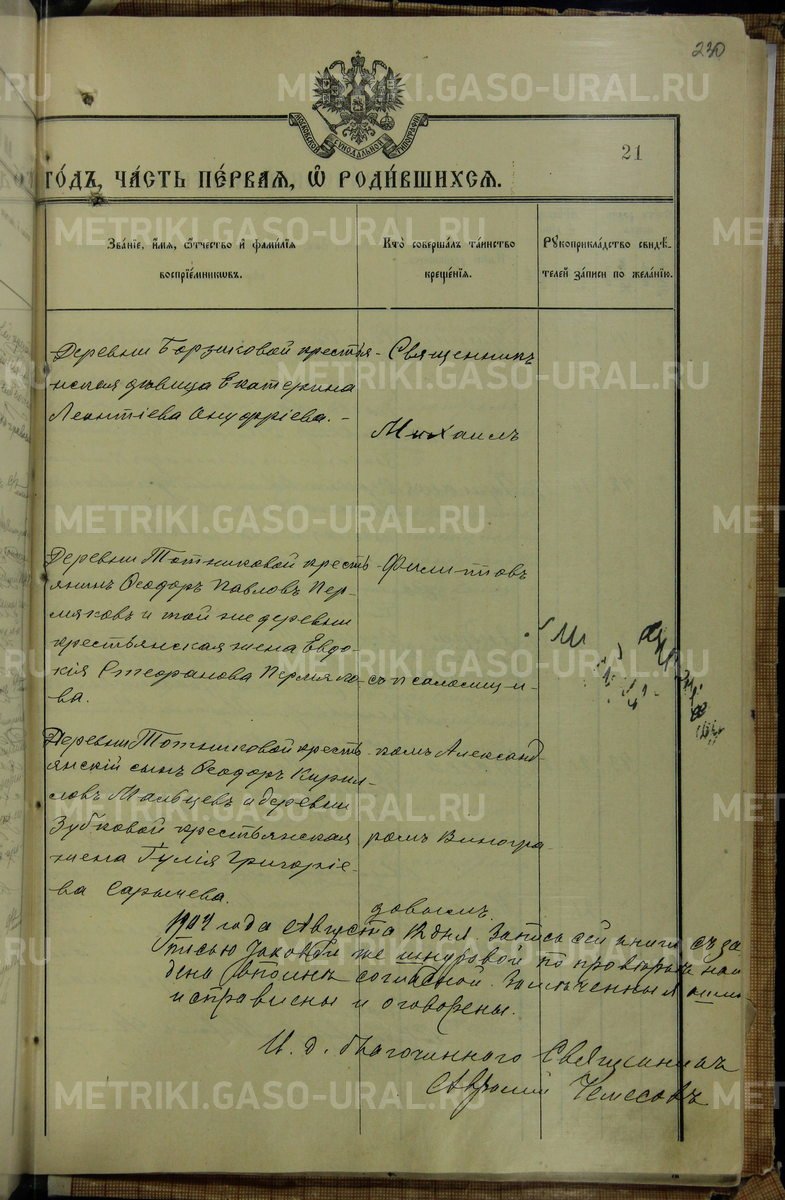 230
МОСКОВСКОЙ СѴНОДАЛЬНОЙ ТИПОГРАФІИ
21
ГО́ДЪ, ЧА́СТЬ ПЕ́РВАЯ, Ѡ҆ РОДИ́ВШИХСЯ.
Зва́ніе, и҆́мя, ѻ҆́тчество и҆ фами́лія
воспріе́мникωвъ.
Кто̀ соверша́лъ та́инство
креще́нія.
Рꙋкоприкла́дство свидѣ́-
телей за́писи по жела́нію.
Деревни Борзиковой крестья-
нская дѣвица Екатерина
Леонтіева Онуфріева. -
Священникъ
Михаилъ
Деревни Тотниковой кресть-
янинъ Ѳеодоръ Павловъ Пер-
мяковъ и той же деревни
крестьянская жена Евдо-
кія Стефанова Пермяко-
ва.
Филиповъ
съ псаломщи-
Деревни Тотниковой кресть-
янскій сынъ Ѳеодоръ Кирил-
ловъ Мальцевъ и деревни
Зубковой крестьянская
жена Іулія Григоріе-
ва Сарычева.
комъ Александ-
ромъ Виногра-
довымъ.
1904 года Августа 12 дня. Запись сей книги съ за-
писью таковой же шнуровой по провѣркѣ най
дена вполнѣ согласной. Замѣченныя
исправлены и оговорены.
И. д. благочиннаго Священникъ
METRIKI.GASO-URAL.RU